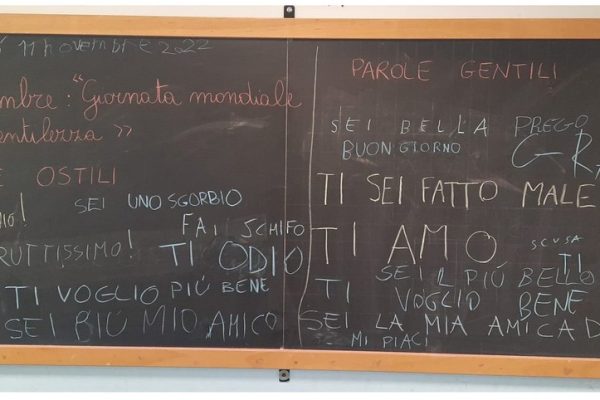 11 novembre 2022
mbre: "Giornata mondiale
entilezza >>
E OSTILI
SEI UNO SGORBIO
DIO!
FAI SCHIFO
RUTTISSIMO!
TI ODIO
TI VOGLIO PIÚ BENE
SEI BIÚ MIO AMICO
PAROLE GENTILI
SEI BELLA PREGO
BUONGIORNO
GR
TI SEI FATTO MALE
TI AMO
SCUSA
TI
SEI IL PIÚ BELLO
TI VOGLIO BENE
SEI LA MIA AMICA D
MI PIACI